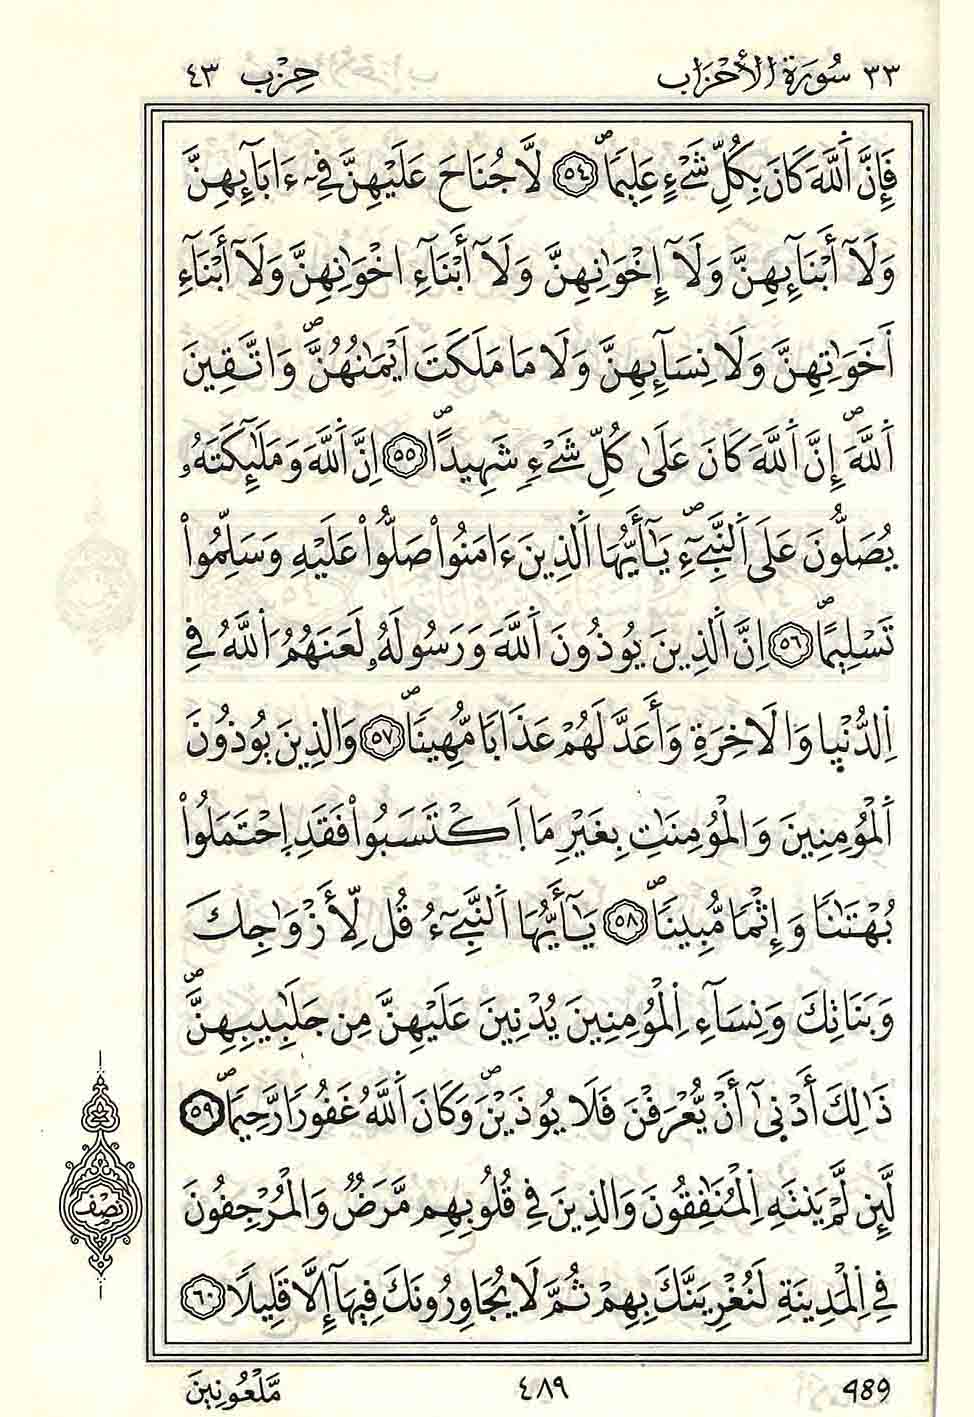 ٣٣ سُورَةُ الأَحْزَابِ حِزْب ٤٣
فَإِنَّ اَللَّهَ كَانَ بِكُلِّ شَےْءٍ عَلِيمٗاۖ ٥٤ لَّا جُنَاحَ عَلَيْهِنَّ فِےٓ ءَابَآئِهِنَّ
وَلَآ أَبْنَآئِهِنَّ وَلَآ إِخْوَٰنِهِنَّ وَلَآ أَبْنَآءِ اخْوَٰنِهِنَّ وَلَآ أَبْنَآءِ
اَ۬خَوَٰتِهِنَّ وَلَا نِسَآئِهِنَّ وَلَا مَا مَلَكَتَ اَيْمَٰنُهُنَّۖ وَاتَّقِينَ
اَللَّهَۖ إِنَّ اَللَّهَ كَانَ عَلَىٰ كُلِّ شَےْءٖ شَهِيداًۖ ٥٥ اِنَّ اَللَّهَ وَمَلَٰٓئِكَتَهُۥ
يُصَلُّونَ عَلَى اَلنَّبِےٓءِۖ يَٰٓأَيُّهَا اَلذِينَ ءَامَنُواْ صَلُّواْ عَلَيْهِ وَسَلِّمُواْ
تَسْلِيماًۖ ٥٦ اِنَّ اَلذِينَ يُوذُونَ اَللَّهَ وَرَسُولَهُۥ لَعَنَهُمُ اَللَّهُ فِے
اِلدُّنْيِا وَالَاخِرَةِ وَأَعَدَّ لَهُمْ عَذَاباٗ مُّهِيناٗۖ ٥٧ وَالذِينَ يُوذُونَ
اَلْمُومِنِينَ وَالْمُومِنَٰتِ بِغَيْرِ مَا اَ۪كْتَسَبُواْ فَقَدِ اِ۪حْتَمَلُواْ
بُهْتَٰناٗ وَإِثْماٗ مُّبِيناٗۖ ٥٨ يَٰٓأَيُّهَا اَلنَّبِےٓءُ قُل لِّأَزْوَٰجِكَ
وَبَنَاتِكَ وَنِسَآءِ اِلْمُومِنِينَ يُدْنِينَ عَلَيْهِنَّ مِن جَلَٰبِيبِهِنَّۖ
ذَٰلِكَ أَدْنِيٰٓ أَنْ يُّعْرَفْنَ فَلَا يُوذَيْنَۖ وَكَانَ اَللَّهُ غَفُوراٗ رَّحِيماٗۖ ٥٩
لَّئِن لَّمْ يَنتَهِ اِلْمُنَٰفِقُونَ وَالذِينَ فِے قُلُوبِهِم مَّرَضٞ وَالْمُرْجِفُونَ
نصف
فِے اِلْمَدِينَةِ لَنُغْرِيَنَّكَ بِهِمْ ثُمَّ لَا يُجَاوِرُونَكَ فِيهَآ إِلَّا قَلِيلاٗ ٦٠
489 ٤٨٩ مَّلْعُونِينَ